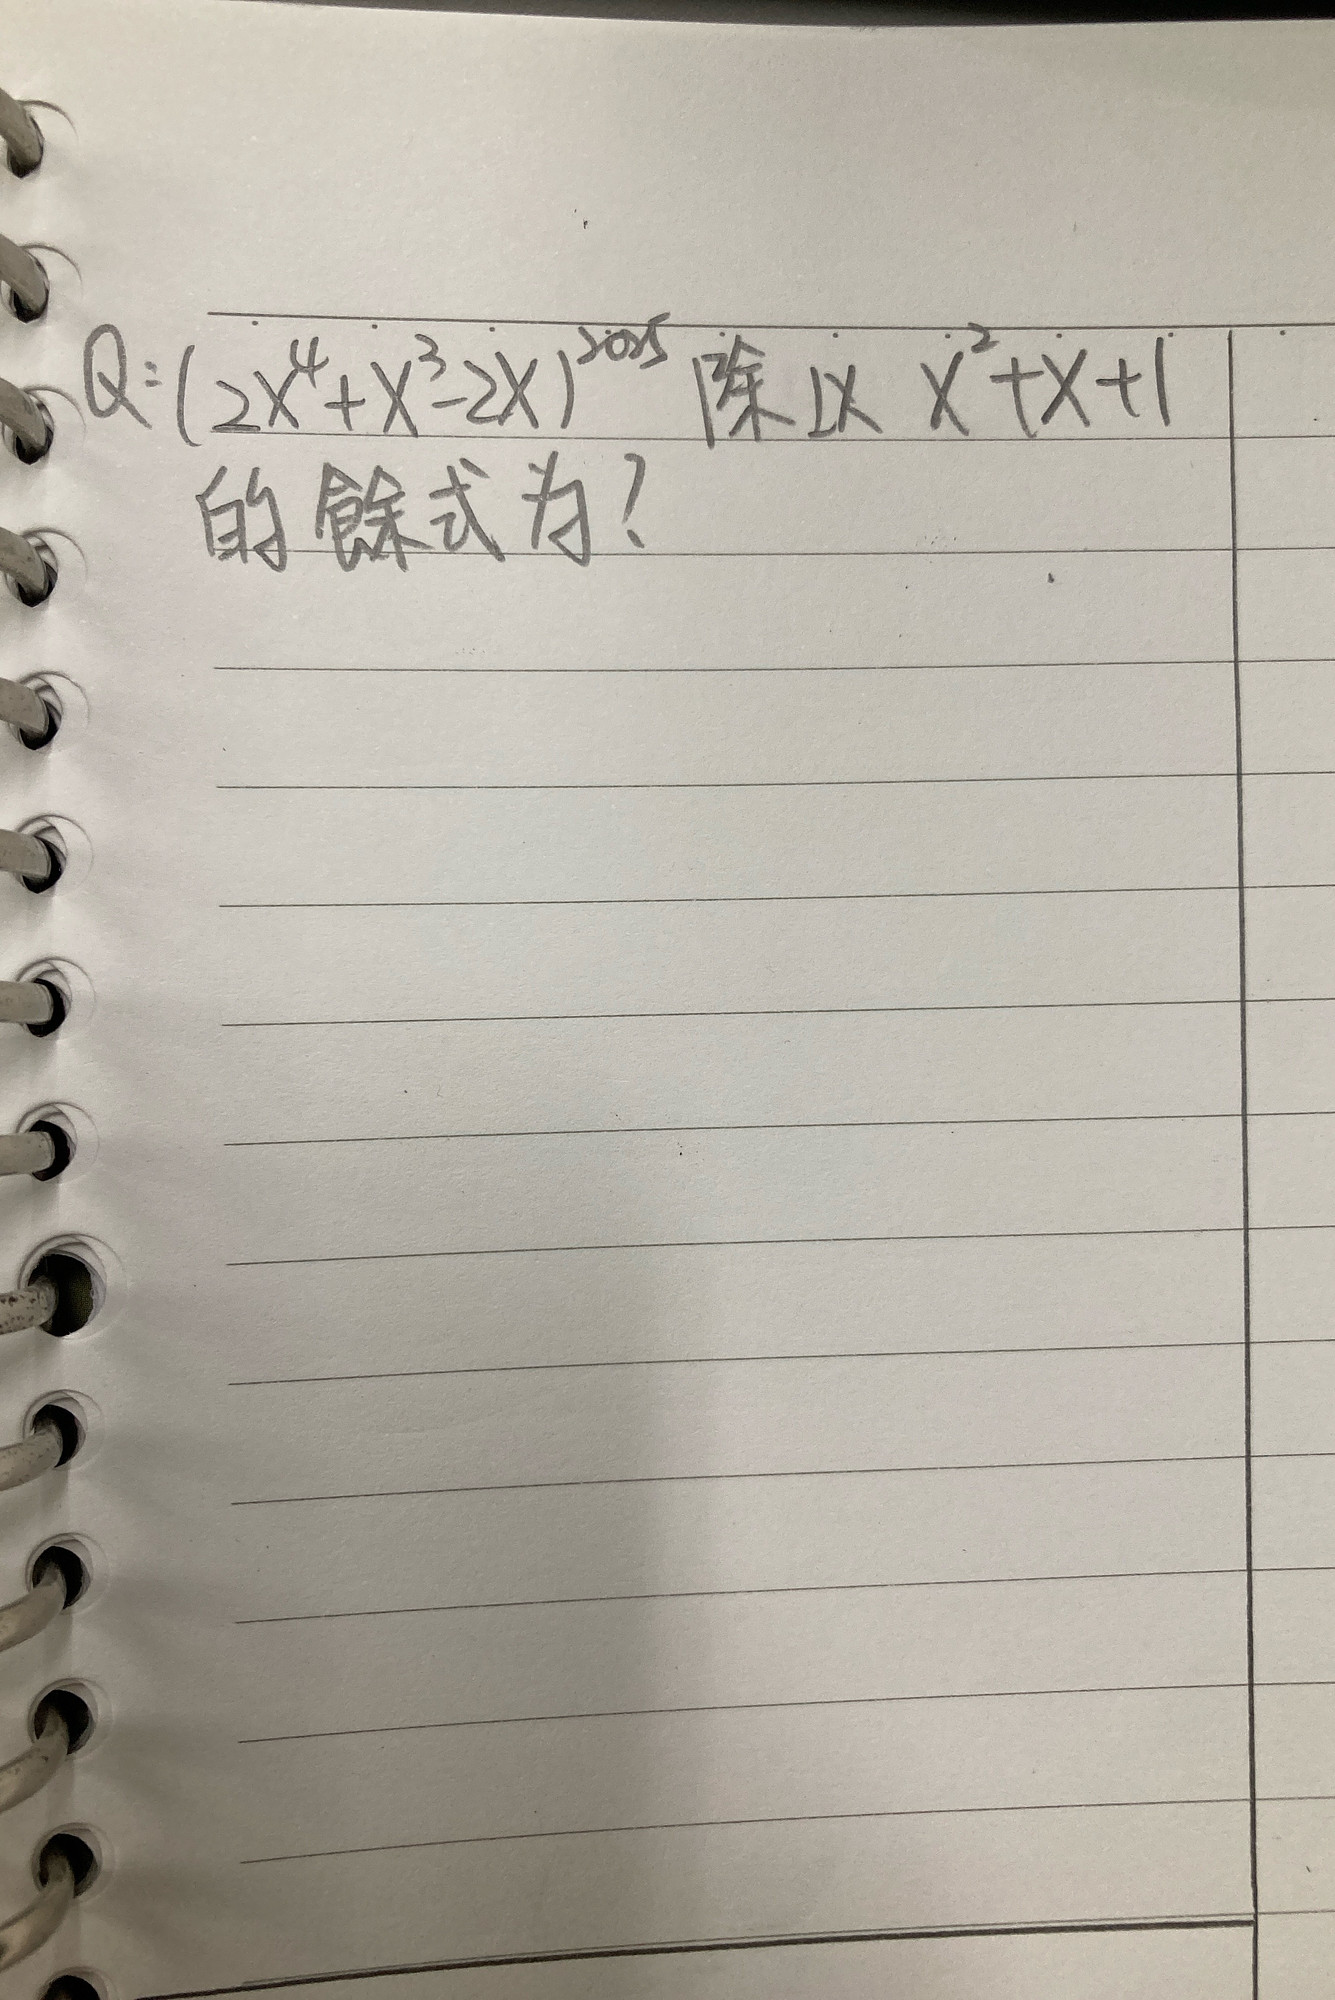 Q:(2x⁴+x³-2x)²⁰²⁵ 除以 x²+x+1
的餘式为?